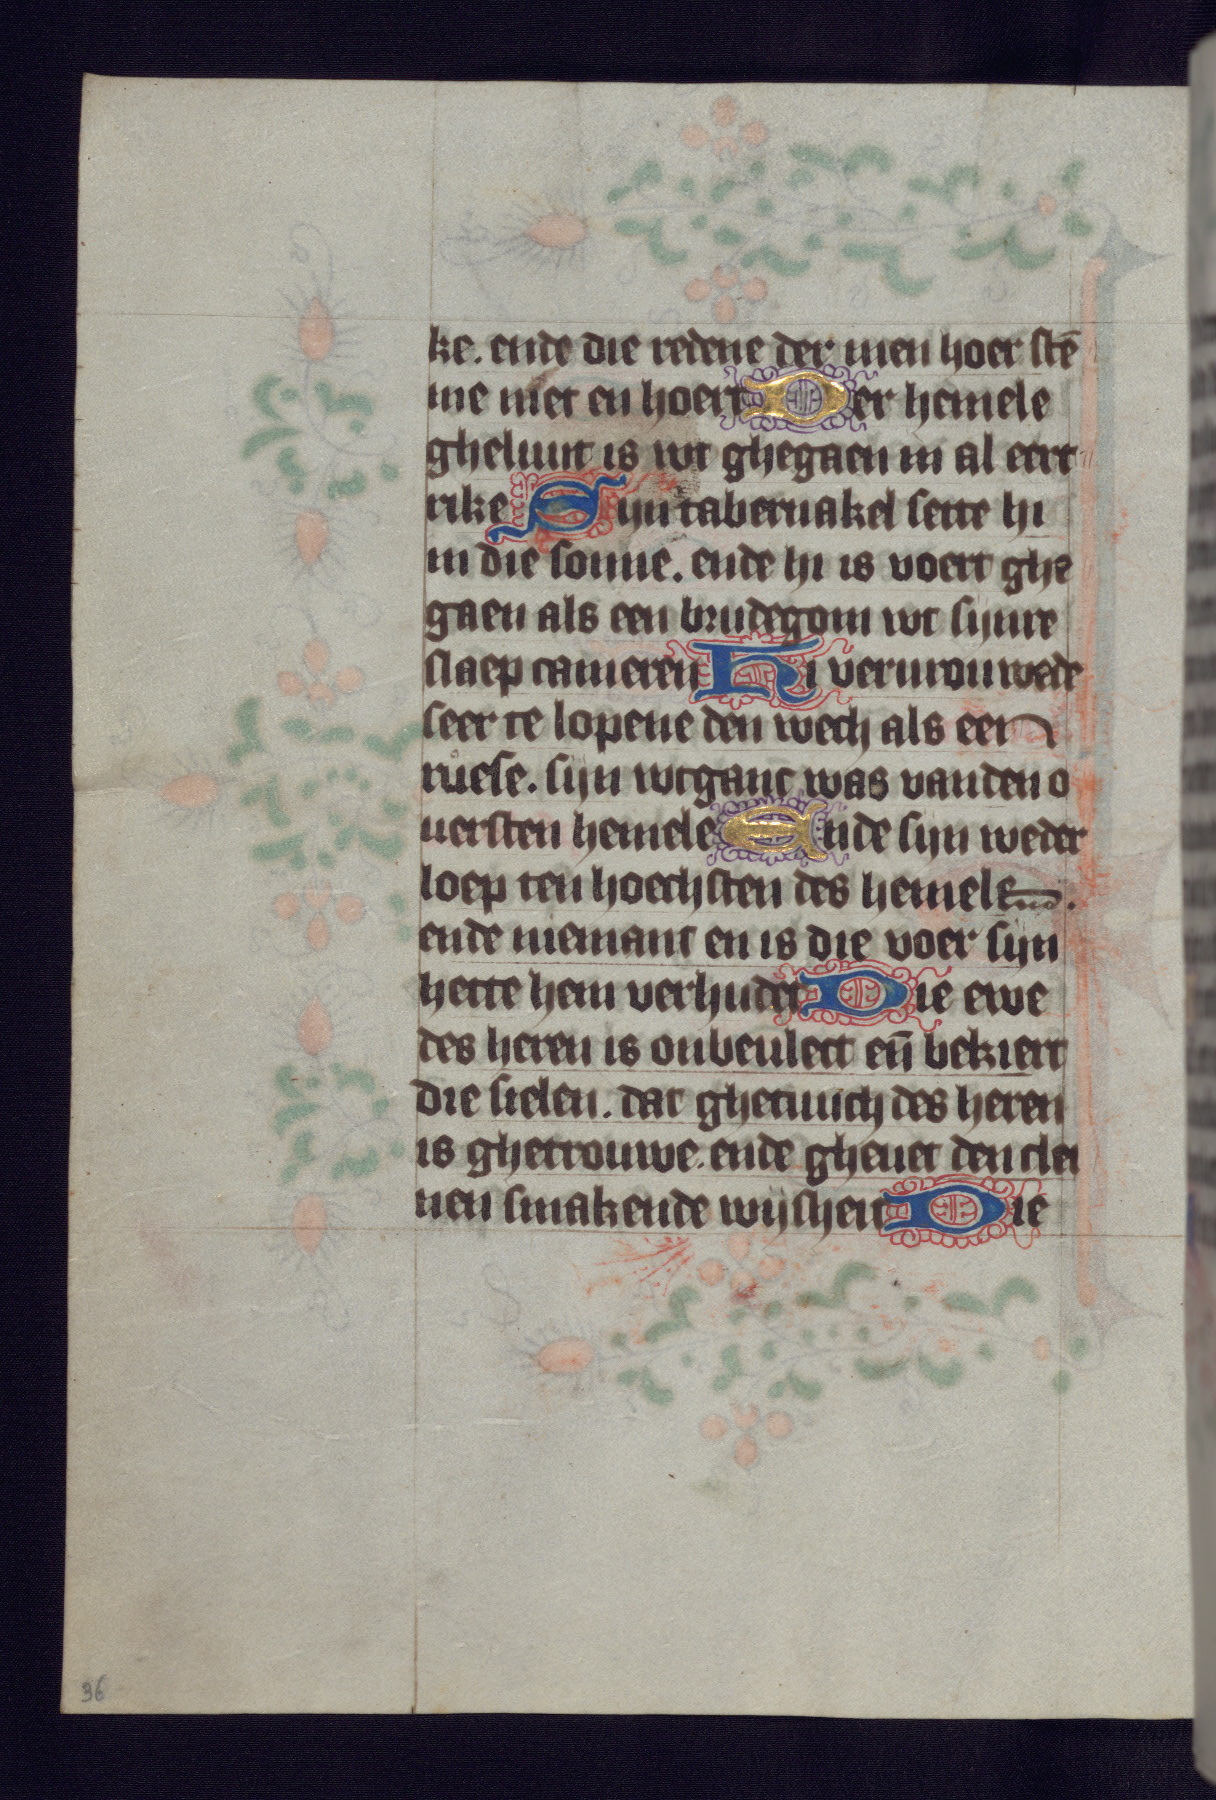 ke. ende die redene der men hoer stē
me niet en hoert Der hemele
gheluut is wt ghegaen in al eert
rike Sijn tabernakel sette hi
in die sonne. ende hi is voert ghe
gaen als een brudegom wt sijnre
slaep cameren Hi vermrouwede
seer te lopene den wech als een
ruese. sijn wtganc was vanden o
uersten hemele Ende sijn weder
loep ten hoechsten des hemels.
ende niemant en is die voer sijn
hette hem verhudet Die ewe
des heren is onbeulect en̄ bekiert
die sielen. dat ghetuuch des heren
is ghetrouwe. ende gheuet den clei
nen smakende wijsheit Die
36